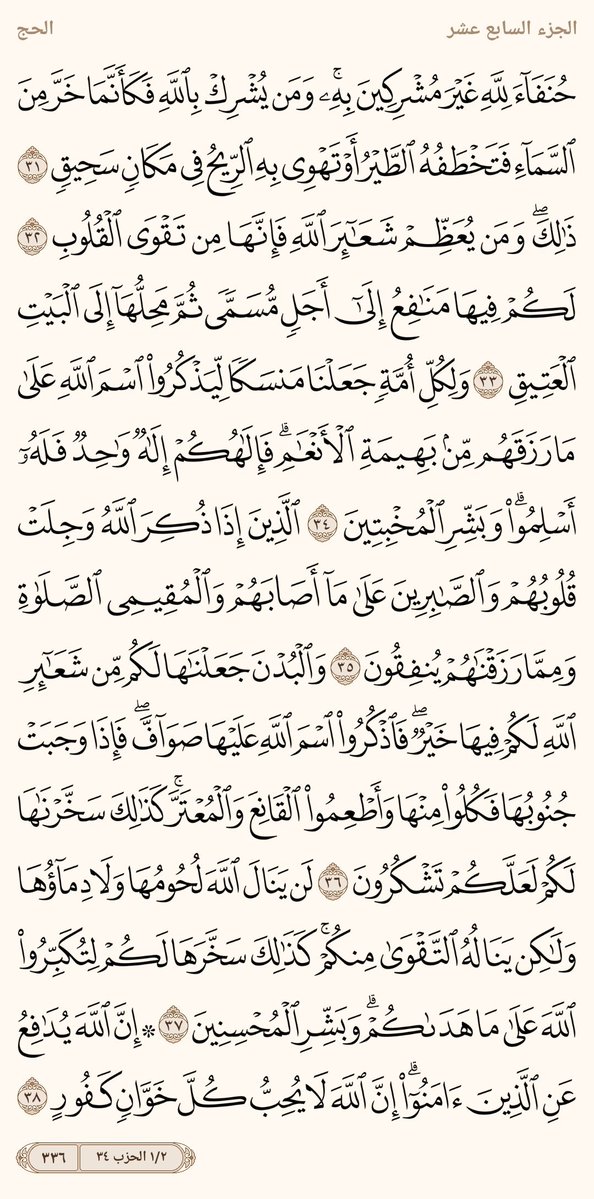 الجزء السابع عشر
الحج
حُنَفَآءَ لِلَّهِ غَيۡرَ مُشۡرِكِينَ بِهِۦۚ وَمَن يُشۡرِكۡ بِٱللَّهِ فَكَأَنَّمَا خَرَّ مِنَ
ٱلسَّمَآءِ فَتَخۡطَفُهُ ٱلطَّيۡرُ أَوۡ تَهۡوِي بِهِ ٱلرِّيحُ فِي مَكَانٖ سَحِيقٖ ٣١
ذَٰلِكَۖ وَمَن يُعَظِّمۡ شَعَٰٓئِرَ ٱللَّهِ فَإِنَّهَا مِن تَقۡوَى ٱلۡقُلُوبِ ٣٢
لَكُمۡ فِيهَا مَنَٰفِعُ إِلَىٰٓ أَجَلٖ مُّسَمّٗى ثُمَّ مَحِلُّهَآ إِلَى ٱلۡبَيۡتِ
ٱلۡعَتِيقِ ٣٣ وَلِكُلِّ أُمَّةٖ جَعَلۡنَا مَنسَكٗا لِّيَذۡكُرُواْ ٱسۡمَ ٱللَّهِ عَلَىٰ
مَا رَزَقَهُم مِّنۢ بَهِيمَةِ ٱلۡأَنۡعَٰمِۗ فَإِلَٰهُكُمۡ إِلَٰهٞ وَٰحِدٞ فَلَهُۥٓ
أَسۡلِمُواْۗ وَبَشِّرِ ٱلۡمُخۡبِتِينَ ٣٤ ٱلَّذِينَ إِذَا ذُكِرَ ٱللَّهُ وَجِلَتۡ
قُلُوبُهُمۡ وَٱلصَّٰبِرِينَ عَلَىٰ مَآ أَصَابَهُمۡ وَٱلۡمُقِيمِي ٱلصَّلَوٰةِ
وَمِمَّا رَزَقۡنَٰهُمۡ يُنفِقُونَ ٣٥ وَٱلۡبُدۡنَ جَعَلۡنَٰهَا لَكُم مِّن شَعَٰٓئِرِ
ٱللَّهِ لَكُمۡ فِيهَا خَيۡرٞۖ فَٱذۡكُرُواْ ٱسۡمَ ٱللَّهِ عَلَيۡهَا صَوَآفَّۖ فَإِذَا وَجَبَتۡ
جُنُوبُهَا فَكُلُواْ مِنۡهَا وَأَطۡعِمُواْ ٱلۡقَانِعَ وَٱلۡمُعۡتَرَّۚ كَذَٰلِكَ سَخَّرۡنَٰهَا
لَكُمۡ لَعَلَّكُمۡ تَشۡكُرُونَ ٣٦ لَن يَنَالَ ٱللَّهَ لُحُومُهَا وَلَا دِمَآؤُهَا
وَلَٰكِن يَنَالُهُ ٱلتَّقۡوَىٰ مِنكُمۡۚ كَذَٰلِكَ سَخَّرَهَا لَكُمۡ لِتُكَبِّرُواْ
ٱللَّهَ عَلَىٰ مَا هَدَىٰكُمۡۗ وَبَشِّرِ ٱلۡمُحۡسِنِينَ ٣٧ ۞ إِنَّ ٱللَّهَ يُدَٰفِعُ
عَنِ ٱلَّذِينَ ءَامَنُوٓاْۗ إِنَّ ٱللَّهَ لَا يُحِبُّ كُلَّ خَوَّانٖ كَفُورٍ ٣٨
١/٢ الحزب ٣٤
٣٣٦